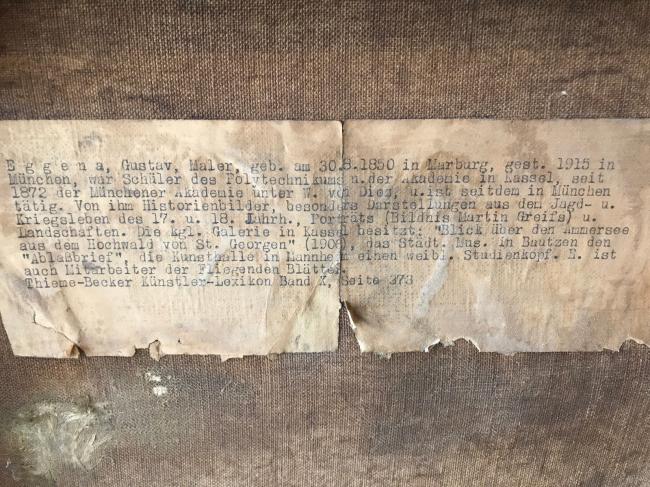 E g g e n a, Gustav, Maler, geb. am 30.8.1850 in Marburg, gest. 1915 in
München, war Schüler des Polytechnikums u.der Akademie in Kassel, seit
1872 der Münchener Akademie unter W. von Diez, u.ist seitdem in München
tätig. Von ihm Historienbilder, besonders Darstellungen aus dem Jagd- u.
Kriegsleben des 17. u. 18. Jahrh., Porträts (Bildnis Martin Greifs) u.
Landschaften. Die kgl. Galerie in Kassel besitzt: "Blick über den Ammersee
aus dem Hochwald von St. Georgen" (1906), das Städt. Mus. in Bautzen den
"Ablaßbrief", die Kunsthalle in Mannheim einen weibl. Studienkopf. E. ist
auch Mitarbeiter der Fliegenden Blätter.
Thieme-Becker Künstler-Lexikon Band X, Seite 373